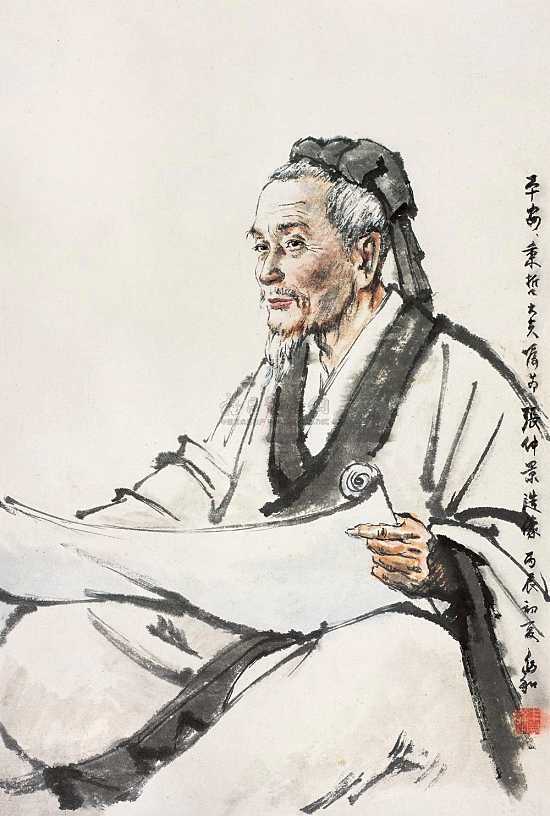 平安、秉哲大夫張仲景造像 丙辰初夏 兆和